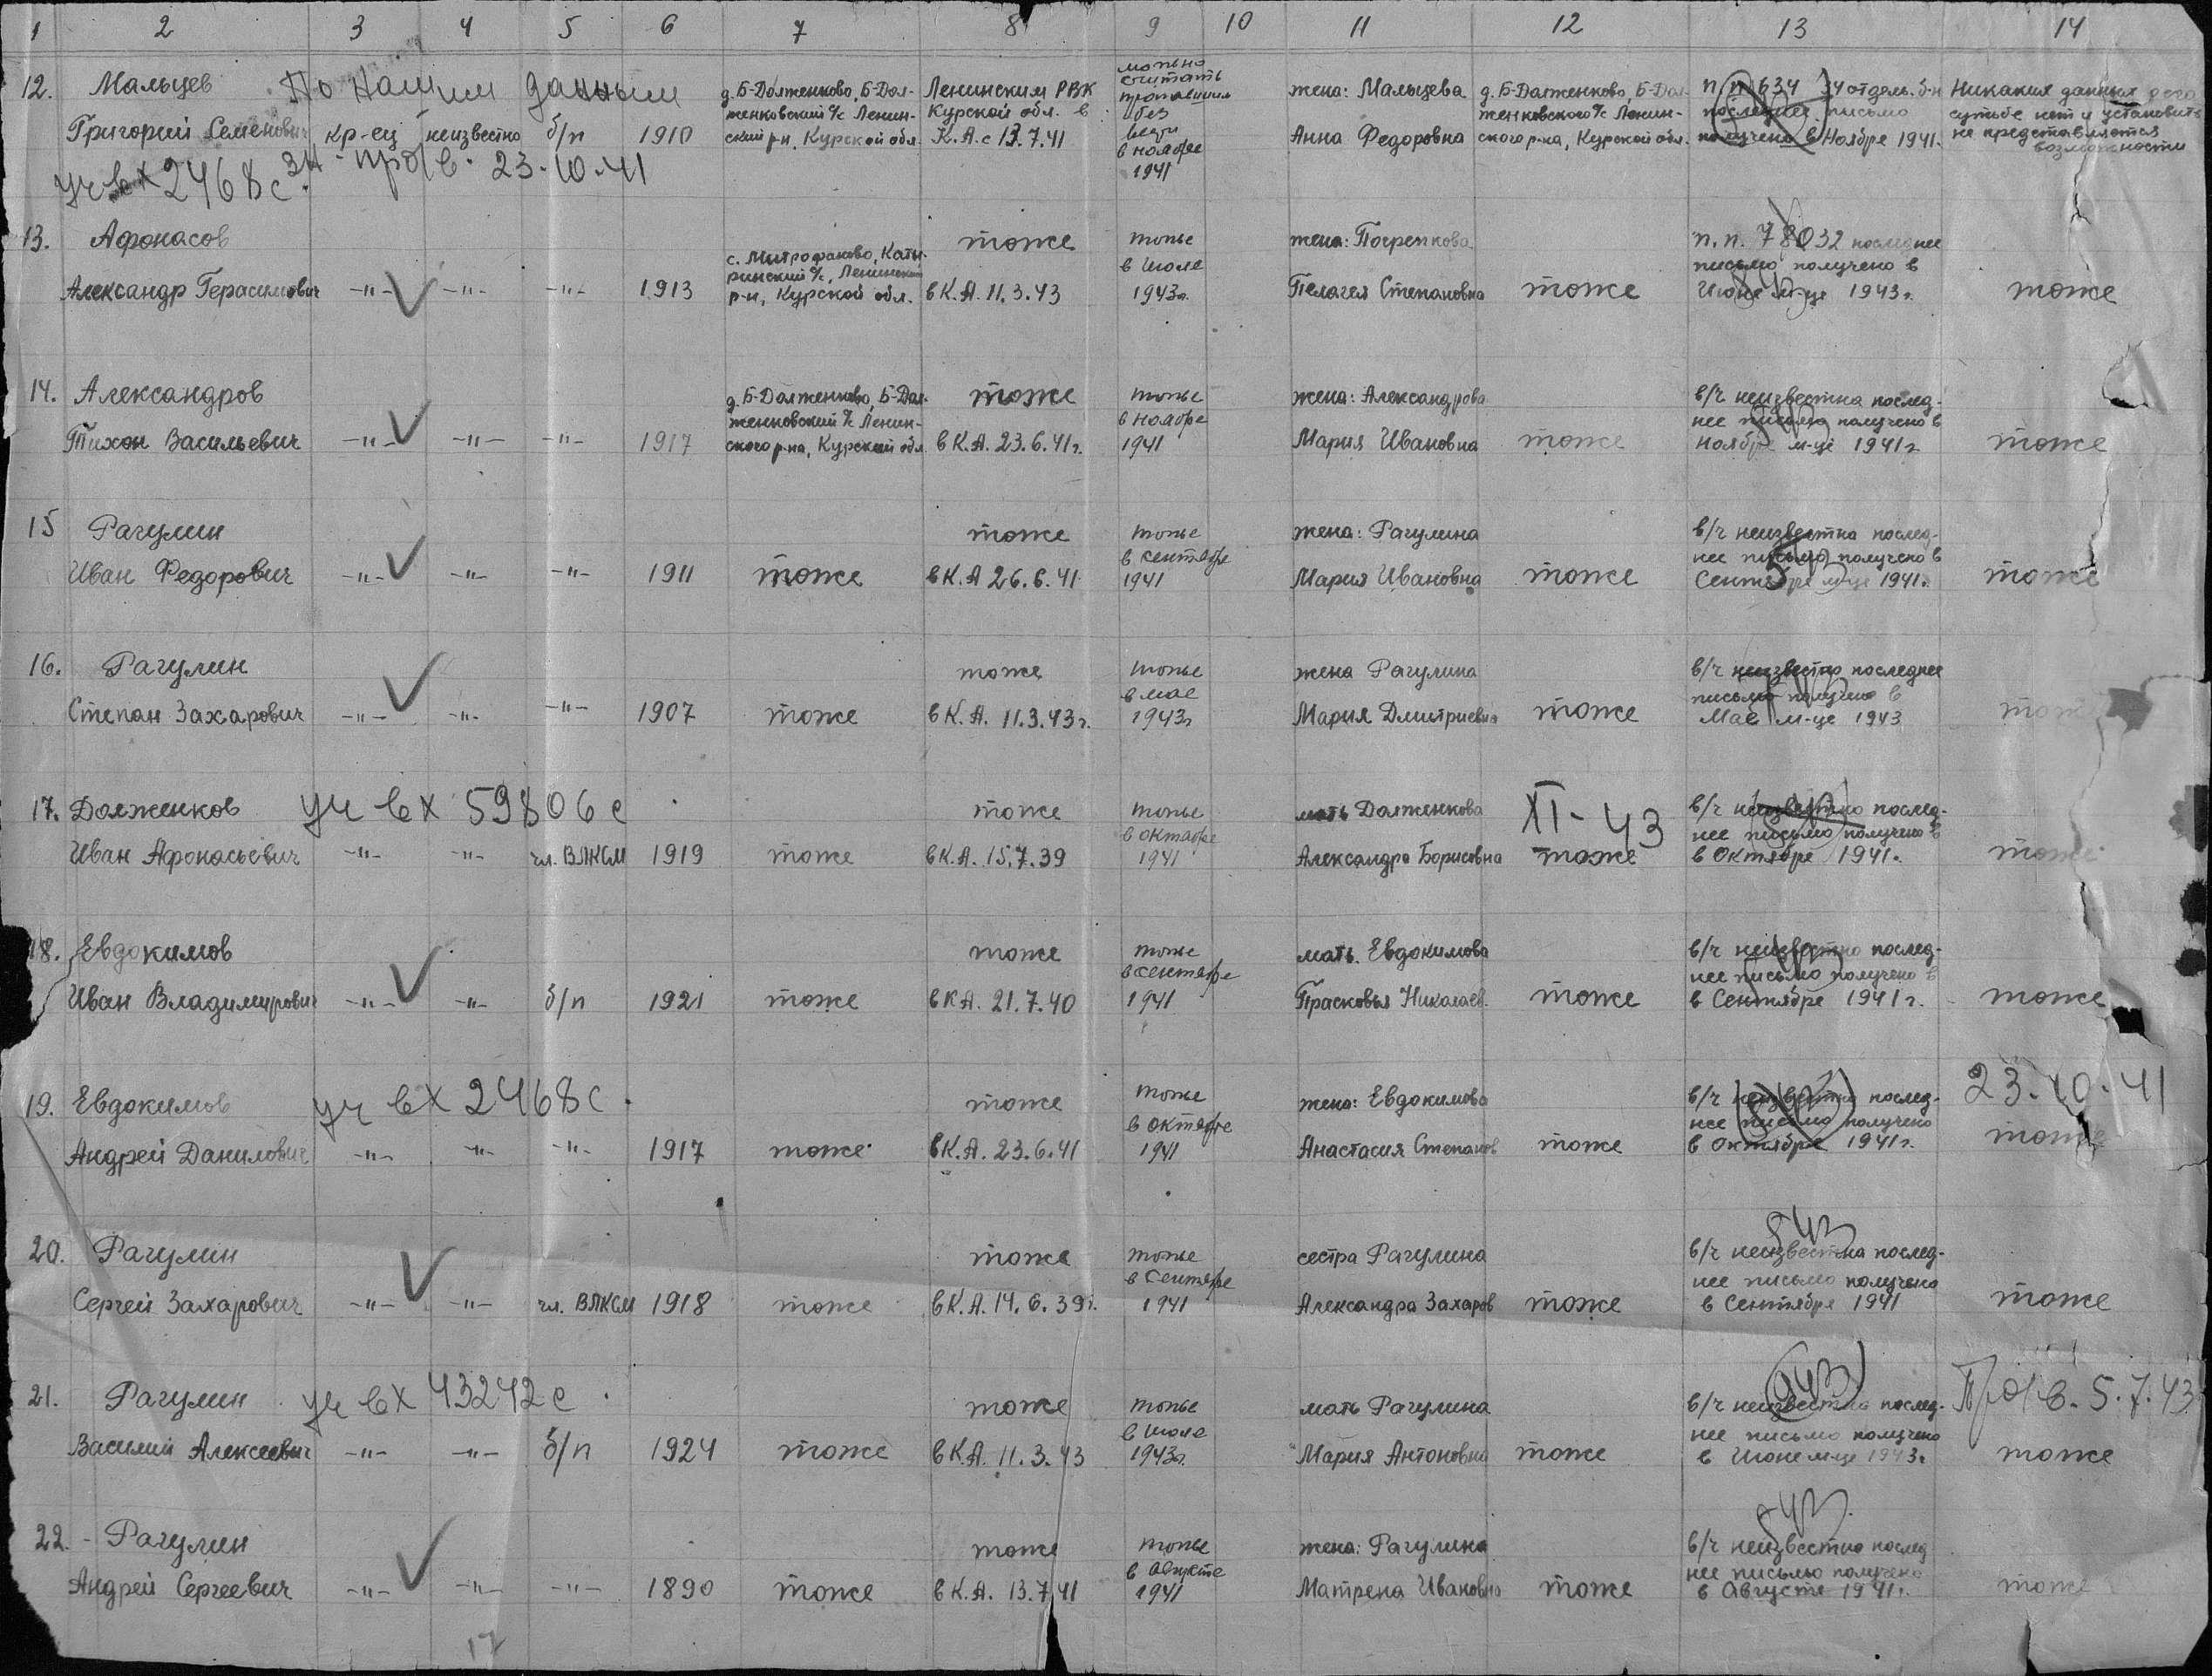 1 2 3 4 5 6 7 8 9 10 11 12 13 14
12. Мальцев По нашим данным
Григорий Семенович кр-ец неизвестно б/п 1910
д. Б-Долженково, Б-Дол-
женковский с/с Ленин-
ский р-н, Курской обл.
Ленинским РВК
Курской обл. в
К.А. с 13.7.41
можно
считать
пропавшим
без
вести
в ноябре
1941
жена: Мальцева
Анна Федоровна
д. Б-Долженково, Б-Дол-
женковского с/с Ленин-
ского р-на, Курской обл.
п/п 634 34 отдел. б-н
последнее письмо
получено в Ноябре 1941.
Никаких данных о его
судьбе нет и установить
не представляется
возможности
уч вх 2468с
зн - проп в. 23.10.41
13. Афонасов
Александр Герасимович -"- -"- -"- 1913
с. Митрофаново, Каты-
ринский с/с, Ленинский
р-н, Курской обл.
тоже
в К.А. 11.3.43
тоже
в июле
1943г.
жена: Погрепкова
Пелагея Степановна
тоже
п.п. 78032 последнее
письмо получено в
Июне м-це 1943г.
тоже
14. Александров
Тихон Васильевич -"- -"- -"- 1917
д. Б-Долженково, Б-Дол-
женковский с/с Ленин-
ского р-на, Курской обл
тоже
в К.А. 23.6.41г.
тоже
в ноябре
1941
жена: Александрова
Мария Ивановна
тоже
в/ч неизвестна послед-
нее письмо получено в
Ноябре м-це 1941г
тоже
15 Рагулин
Иван Федорович -"- -"- -"- 1911 тоже
тоже
в К.А 26.6.41
тоже
в сентябре
1941
жена: Рагулина
Мария Ивановна
тоже
в/ч неизвестна послед-
нее письмо получено в
Сентябре м-це 1941г.
тоже
16. Рагулин
Степан Захарович -"- -"- -"- 1907 тоже
тоже
в К.А. 11.3.43г.
тоже
в мае
1943г
жена Рагулина
Мария Дмитриевна
тоже
в/ч неизвестно последнее
письмо получено в
Мае м-це 1943
тоже
17. Долженков уч вх 59806с
Иван Афонасьевич -"- -"- чл. ВЛКСМ 1919 тоже
тоже
в К.А. 15.7.39
тоже
в октябре
1941
мать Долженкова
Александра Борисовна
XI-43
тоже
в/ч неизвестно послед-
нее письмо получено в
в Октябре 1941.
тоже
18. Евдокимов
Иван Владимирович -"- -"- б/п 1921 тоже
тоже
в К.А. 21.7.40
тоже
в сентябре
1941
мать. Евдокимова
Прасковья Николаев.
тоже
в/ч неизвестно послед-
нее письмо получено в
в Сентябре 1941г.
тоже
19. Евдокимов уч вх 2468с
Андрей Данилович -"- -"- -"- 1917 тоже
тоже
в К.А. 23.6.41
тоже
в октябре
1941
жена: Евдокимова
Анастасия Степанов
тоже
в/ч неизвестно послед-
нее письмо получено
в октябре 1941г.
23.10.41
тоже
20. Рагулин
Сергей Захарович -"- -"- чл. ВЛКСМ 1918 тоже
тоже
в К.А. 14.6.39г.
тоже
в Сентябре
1941
сестра Рагулина
Александра Захаров
тоже
в/ч неизвестна послед-
нее письмо получено
в Сентябре 1941
тоже
21. Рагулин уч вх 43242с
Василий Алексеевич -"- -"- б/п 1924 тоже
тоже
в К.А. 11.3.43
тоже
в июле
1943г.
мать Рагулина
Мария Антоновна
тоже
943
в/ч неизвестна послед-
нее письмо получено
в Июне м-це 1943.
Проп в. 5.7.43
тоже
22. Рагулин
Андрей Сергеевич -"- -"- -"- 1890 тоже
тоже
в К.А. 13.7.41
тоже
в августе
1941
жена: Рагулина
Матрена Ивановна
тоже
в/ч неизвестно послед
нее письмо получено
в Августе 1941г.
тоже
17